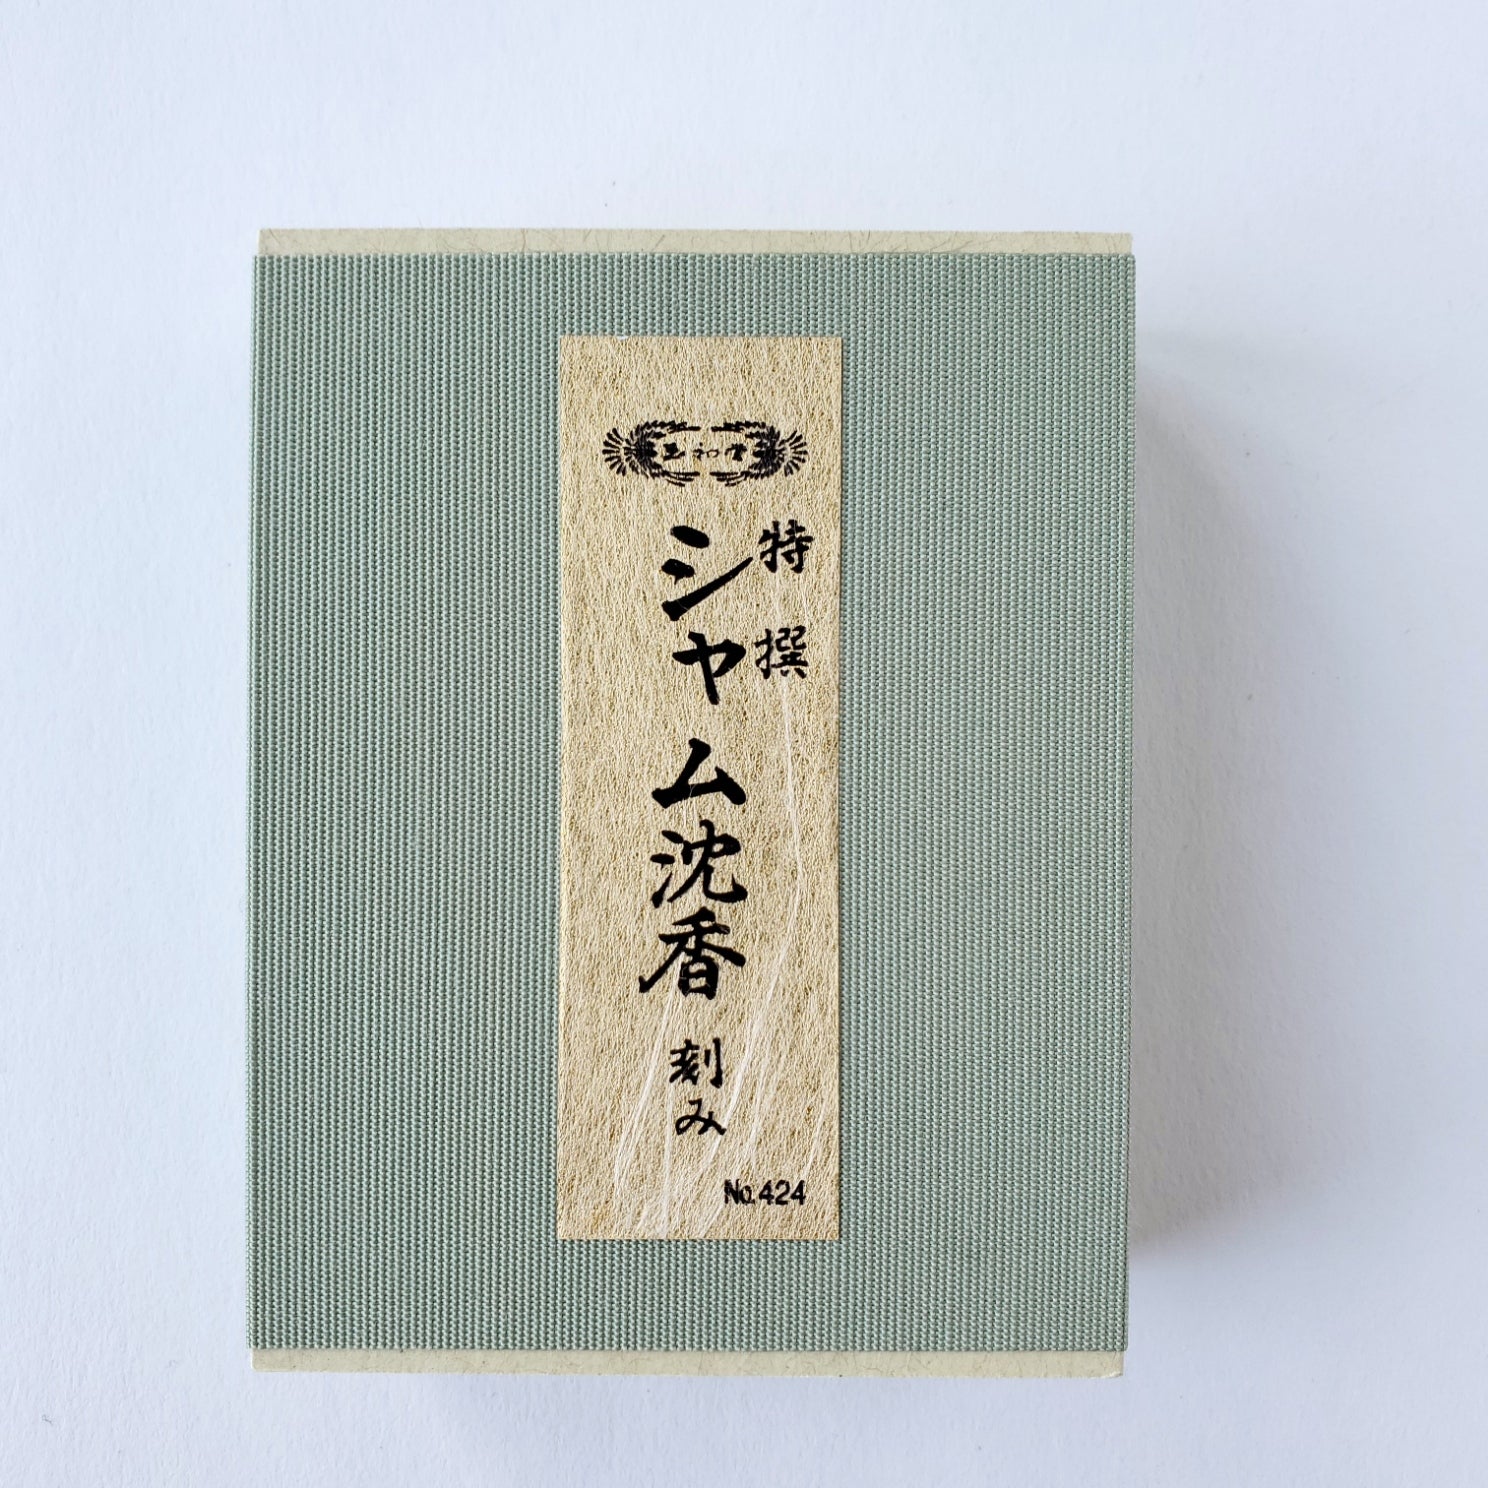 玉和堂
特撰
シャム沈香 刻み
No.424